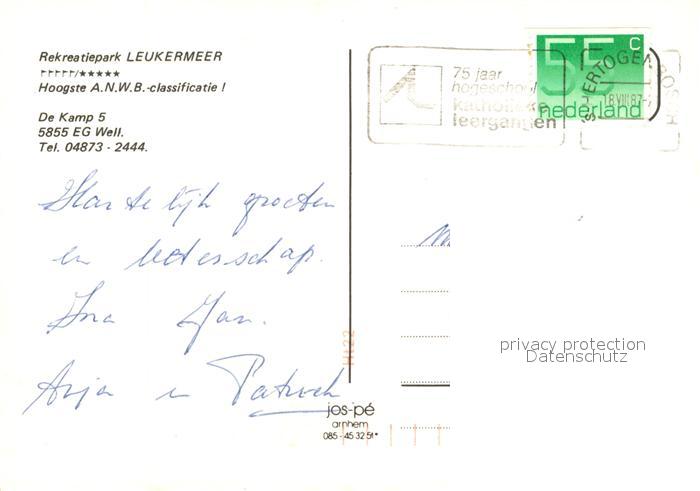 Rekreatiepark LEUKERMEER
/★★★★★
Hoogste A.N.W.B.-classificatie !
De Kamp 5
5855 EG Well.
Tel. 04873 - 2444.
75 jaar
hogeschool
katholieke
leergangen
55 c
nederland
'S-HERTOGENBOSCH
18 VIII 87
Hartelijk groeten
en beterschap.
Ina Jan.
Anja en Patrick
M
Ht22
privacy protection
Datenschutz
jos-pé
arnhem